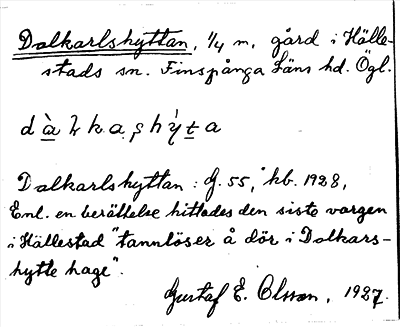 Dalkarlshyttan, 1/4 m, gård i Hälle-
stads sn. Finspånga Läns hd. Ögl.
Dalkarlshyttan: G. 55, kb. 1928,
Enl. en berättelse hittades den siste vargen
i Hällestad "tannlöser å dör i Dalkars-
hytte hage".
Gustaf E. Olsson, 1927.